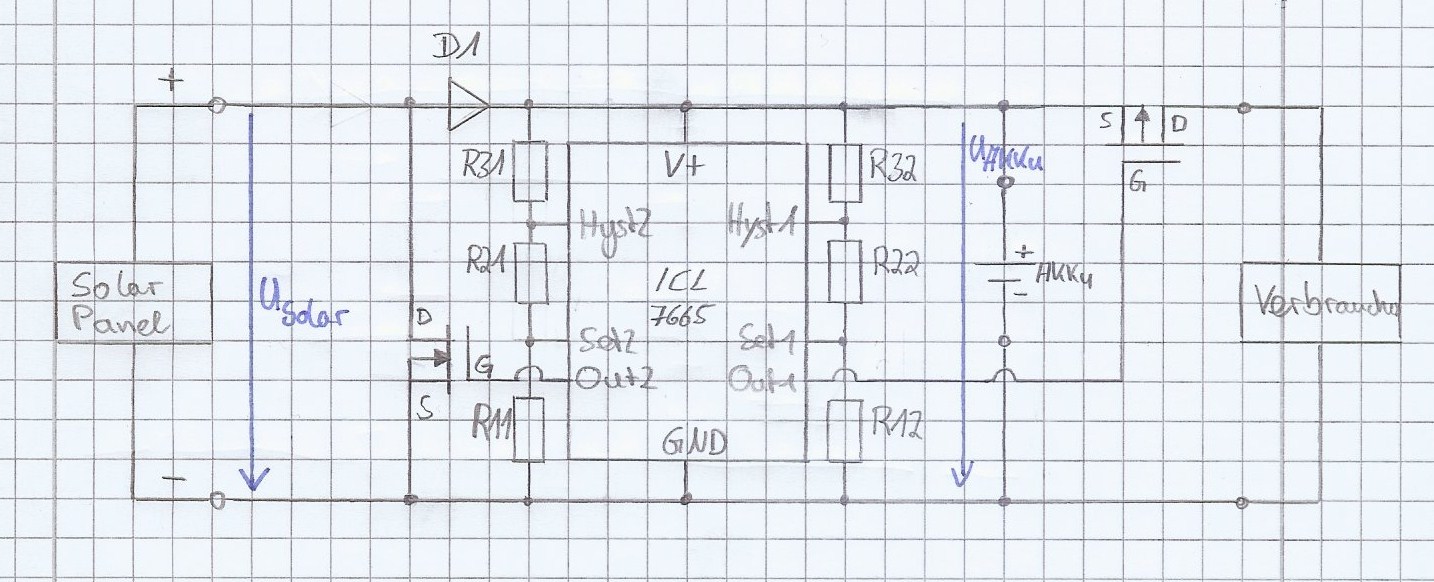 D1
+
S
D
R31
V+
R32
UAkku
G
Hyst2
Hyst1
R21
ICL
7665
R22
+
Akku
-
Solar
Panel
USolar
D
Set2
Set1
Verbraucher
G
Out2
Out1
S
R11
GND
R12
-